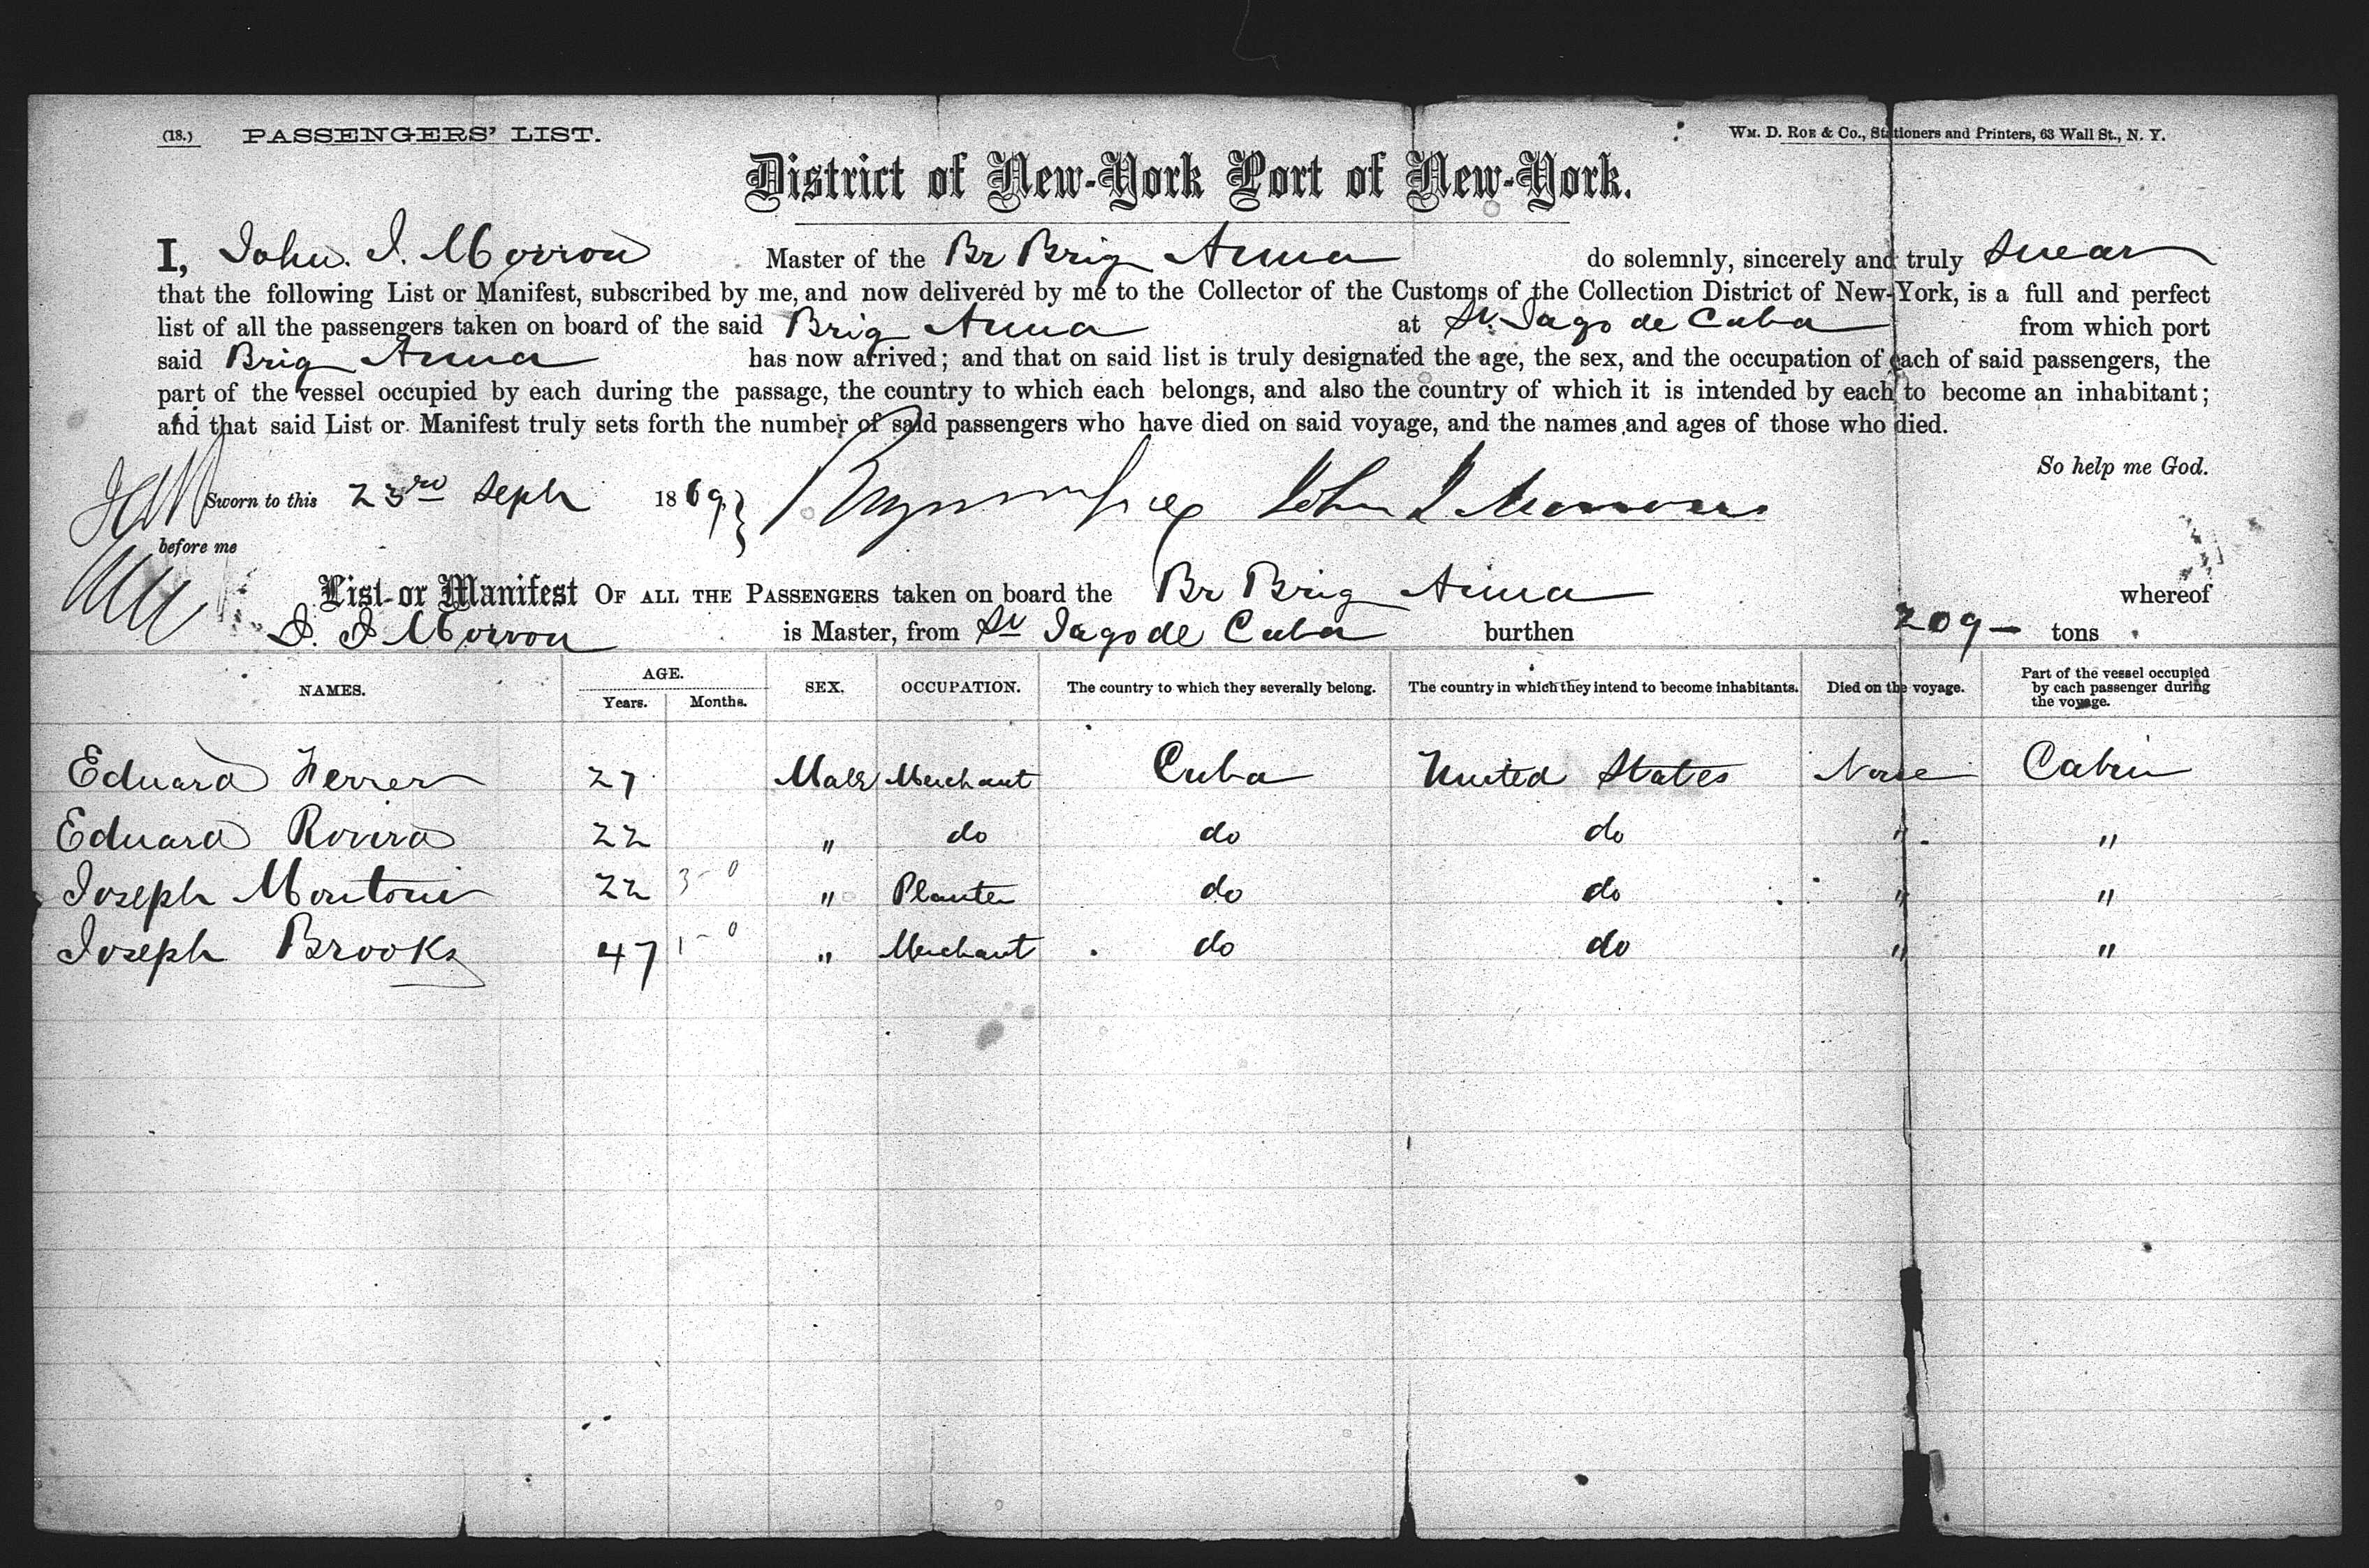 (18.) PASSENGERS' LIST.
WM. D. ROE & CO., Stationers and Printers, 63 Wall St., N. Y.
District of New-York Port of New-York.
I, John. I. Morrow Master of the Br Brig Anna do solemnly, sincerely and truly Swear
that the following List or Manifest, subscribed by me, and now delivered by me to the Collector of the Customs of the Collection District of New-York, is a full and perfect
list of all the passengers taken on board of the said Brig Anna at St. Jago de Cuba from which port
said Brig Anna has now arrived; and that on said list is truly designated the age, the sex, and the occupation of each of said passengers, the
part of the vessel occupied by each during the passage, the country to which each belongs, and also the country of which it is intended by each to become an inhabitant;
and that said List or Manifest truly sets forth the number of said passengers who have died on said voyage, and the names and ages of those who died.
So help me God.
Sworn to this 23rd Sept 1869 } John I Morrow
before me
List or Manifest OF ALL THE PASSENGERS taken on board the Br Brig Anna whereof
J. I Morrow is Master, from St Jago de Cuba burthen 209 – tons
NAMES. AGE. Years. Months. SEX. OCCUPATION. The country to which they severally belong. The country in which they intend to become inhabitants. Died on the voyage. Part of the vessel occupied by each passenger during the voyage.
Eduard Ferrer 27 Male Merchant Cuba United States None Cabin
Eduard Rovira 22 " do do do " "
Joseph Montoni 22 3-0 " Planter do do " "
Joseph Brooks 47 1-0 " Merchant do do " "